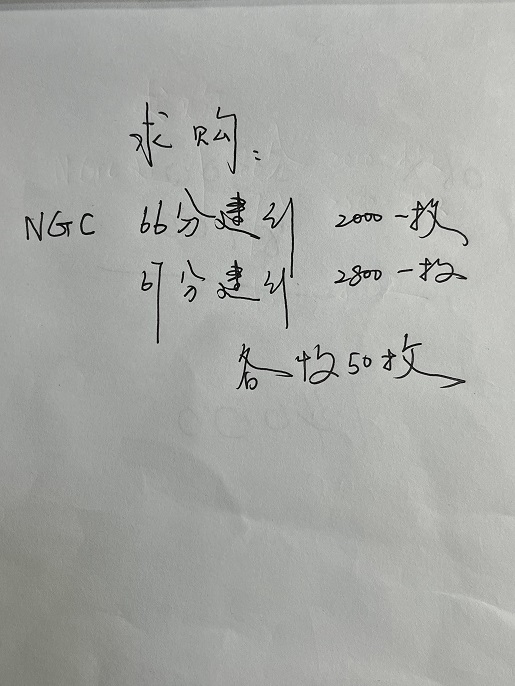 求购:
NGC 66分建行 2000一枚
67分建行 2800一枚
各收50枚